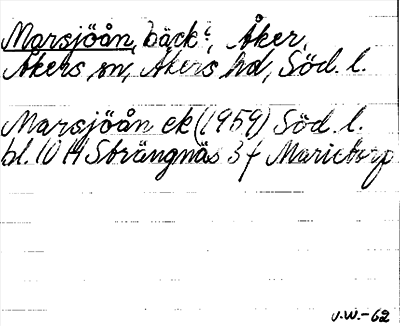 Marsjöån, bäck i Åker,
Åkers sn, Åkers hd, Söd. l.
Marsjöån ek (1959) Söd. l.
bl. 10 H Strängnäs 3 f Marietorp
J.W.-62